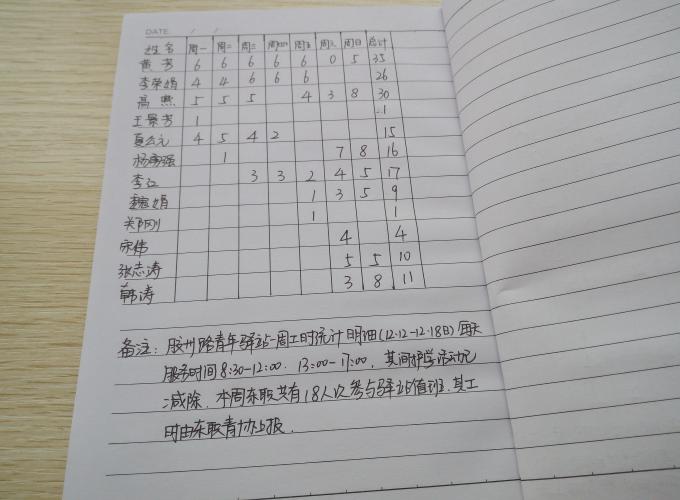 DATE / /
姓名 周一 周二 周三 周四 周五 周六 周日 总计
黄芳 6 6 6 6 6 0 5 35
李荣娟 4 4 6 6 6 26
高燕 5 5 5 4 3 8 30
王景芳 1 1
夏 元 4 5 4 2 15
杨勇强 1 7 8 16
李江 3 3 2 4 5 17
魏娟 1 3 5 9
郑刚 1 1
宋伟 4 4
张志涛 5 5 10
韩涛 3 8 11
备注：胶州路青年驿站一周工时统计明细(12.12-12.18日)每天
服务时间8:30-12:00. 13:00-17:00, 其间护学活动已
减除. 本周东取共有18人次参与驿站值班, 其工
时由东取青协上报.